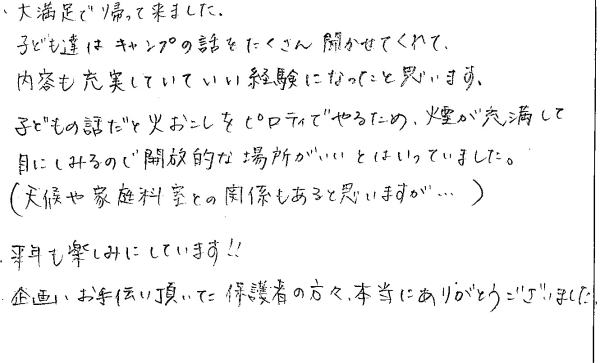 ・大満足で帰って来ました。
子ども達は キャンプの話をたくさん 聞かせてくれて、
内容も充実していていい経験になったと思います。
子どもの話だと火おこしをピロティでやるため、煙が充満して
目にしみるので開放的な場所がいいとはいっていました。
(天候や家庭科室との関係もあると思いますが… )
・来年も楽しみにしています!!
・企画い お手伝い頂いた 保護者の方々、本当にありがとうございました。